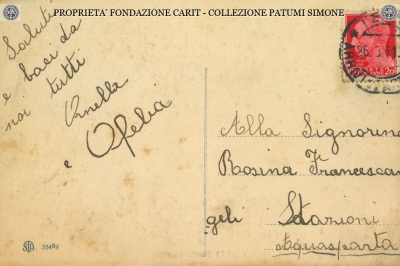 PROPRIETA' FONDAZIONE CARIT - COLLEZIONE PATUMI SIMONE
Saluti
e baci da
noi tutti
Ornella
e Ofelia
Alla Signorina
Rosina Francescan
geli Stazioni
Acquasparta
55489